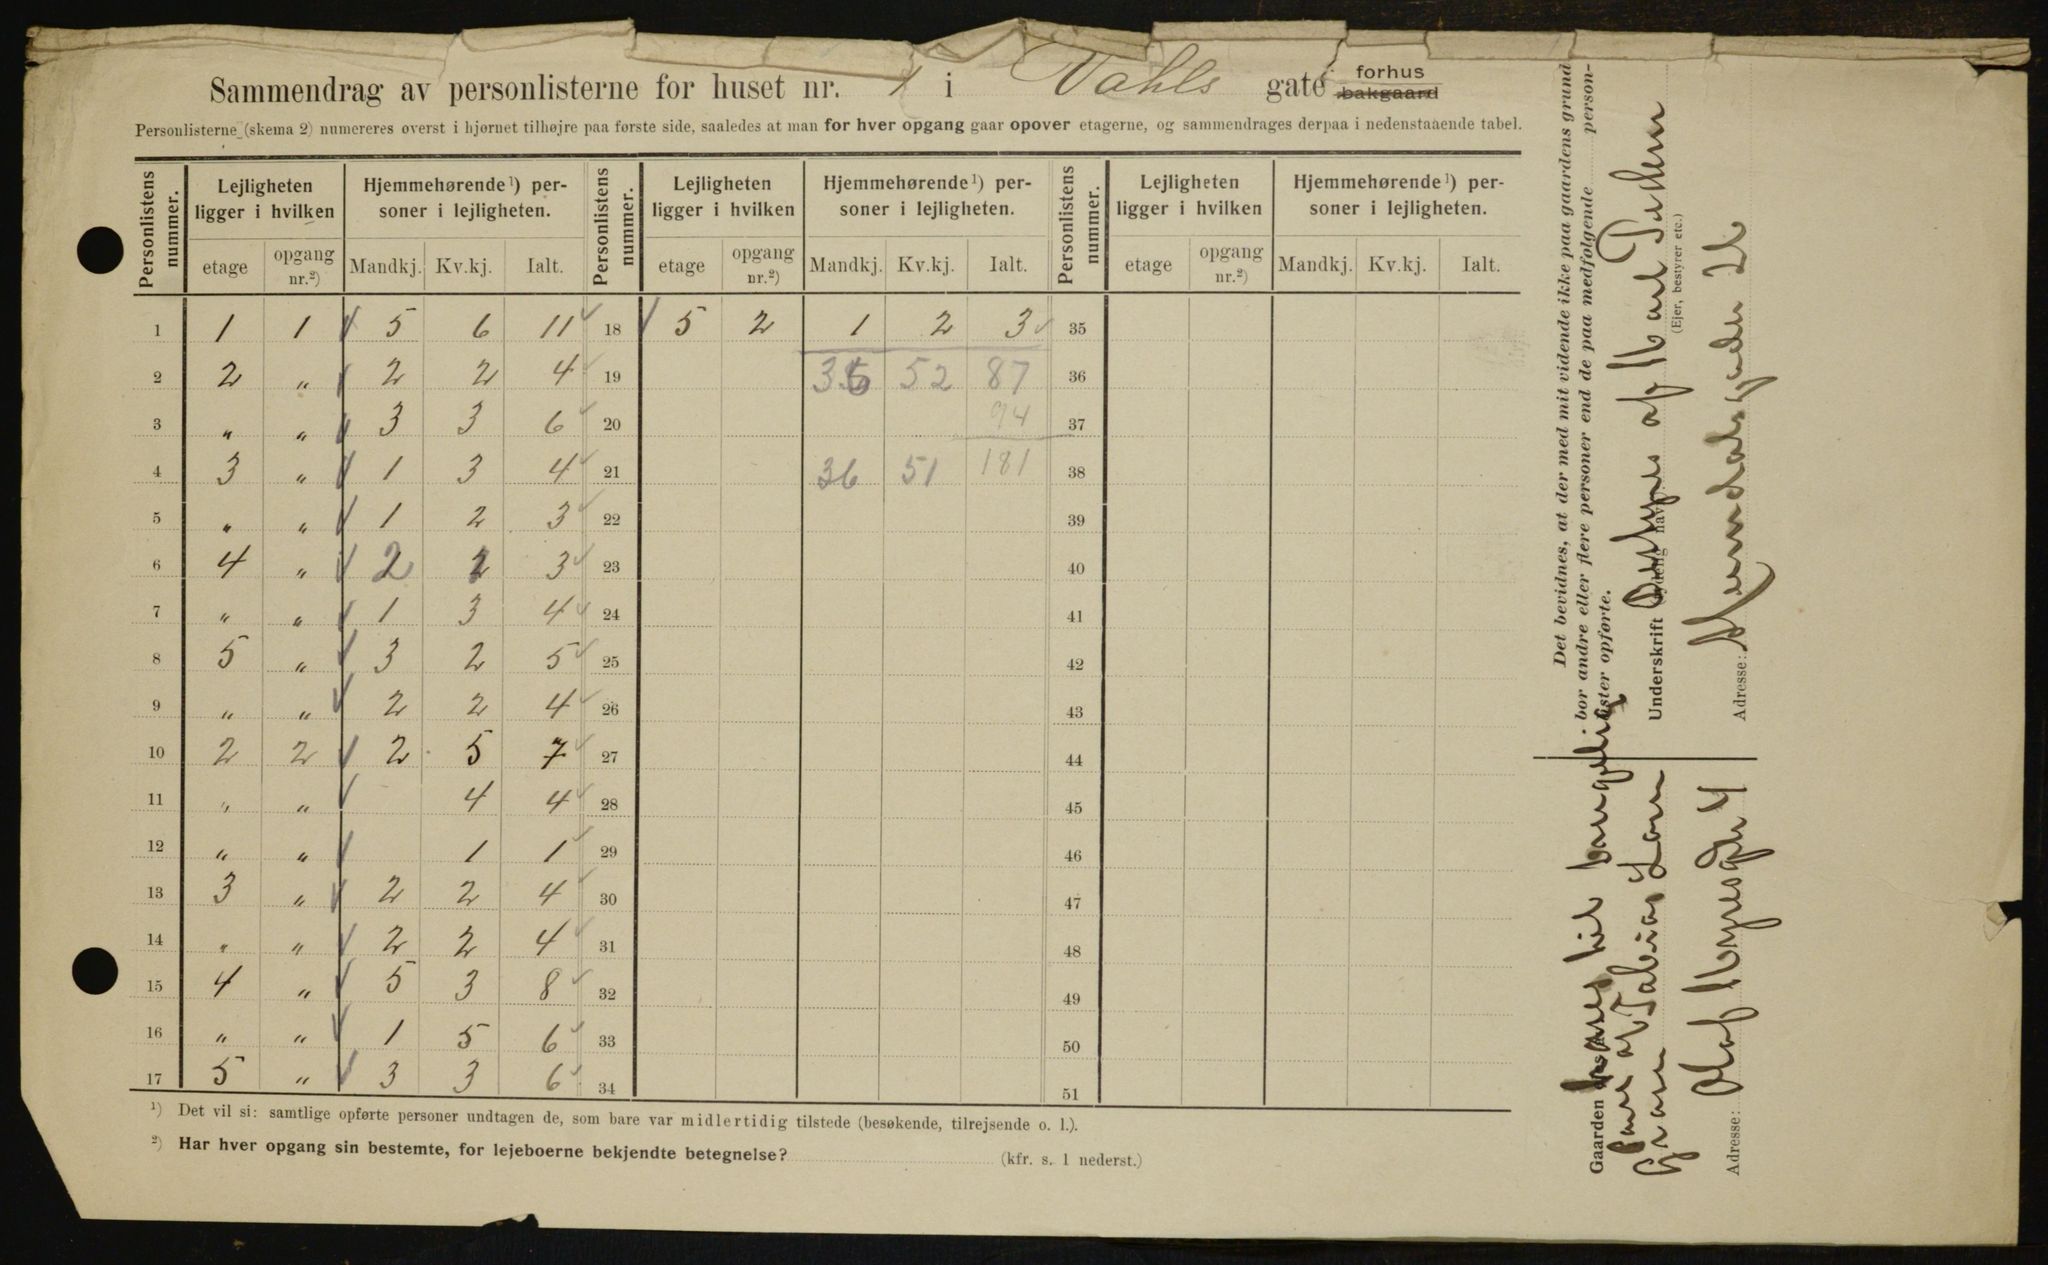 Sammendrag av personlisterne for huset nr. 1 i Vahls gate forhus bakgaard
Personlisterne (skema 2) numereres øverst i hjørnet tilhøjre paa første side, saaledes at man for hver opgang gaar opover etagerne, og sammendrages derpaa i nedenstaaende tabel.
Personlistens nummer. Lejligheten ligger i hvilken Hjemmehørende ¹) personer i lejligheten. Personlistens nummer. Lejligheten ligger i hvilken Hjemmehørende ¹) personer i lejligheten. Personlistens nummer. Lejligheten ligger i hvilken Hjemmehørende ¹) personer i lejligheten.
etage opgang nr.²) Mandkj. Kv.kj. Ialt. etage opgang nr.²) Mandkj. Kv.kj. Ialt. etage opgang nr.²) Mandkj. Kv.kj. Ialt.
1 1 1 5 6 11 18 5 2 1 2 3 35
2 2 " 2 2 4 19 36 52 87 36
3 " " 3 3 6 20 94 37
4 3 " 1 3 4 21 36 51 181 38
5 " " 1 2 3 22 39
6 4 " 2 1 3 23 40
7 " " 1 3 4 24 41
8 5 " 3 2 5 25 42
9 " " 2 2 4 26 43
10 2 2 2 5 7 27 44
11 " " 4 4 28 45
12 " " 1 1 29 46
13 3 " 2 2 4 30 47
14 " " 2 2 4 31 48
15 4 " 5 3 8 32 49
16 " " 1 5 6 33 50
17 5 " 3 3 6 34 51
¹) Det vil si: samtlige opførte personer undtagen de, som bare var midlertidig tilstede (besøkende, tilrejsende o. l.).
²) Har hver opgang sin bestemte, for lejeboerne bekjendte betegnelse? (kfr. s. 1 nederst.)
Det bevidnes, at der med mit vidende ikke paa gaardens grund
bor andre eller flere personer end de paa medfølgende personlister
opførte.
Underskrift (tydelig navn):
(Ejer, bestyrer etc.)
Adresse:
Gaarden
Adresse: Olaf Ryesgt 4